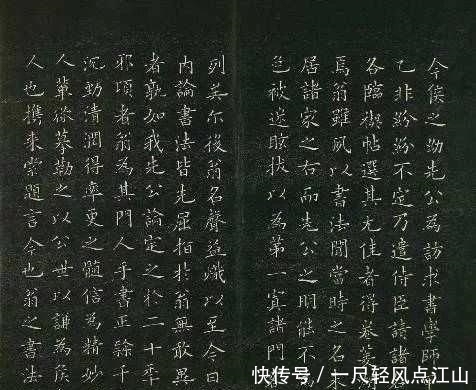 今侯之幼先公為訪求書學師
乙非紛紛不定乃遣侍臣請諸
各臨禊帖選其尤佳者得
焉翁雖夙以書法聞當時之名
居諸家之右而先公之明能不
色被迷眩拔以為第一寘諸門
列矣尔後翁名聲益熾以至今日
内論書法皆先屈指於翁無敢異
者歎如我先公論定之於二十季
邪項者翁為其門人手書正㱕千
沉勁清潤得率更之髓信為精妙
人輩徐摹勒之以公世以謙為侯
人也携来索題言今也翁之書法
快传号/一尺轻风点江山